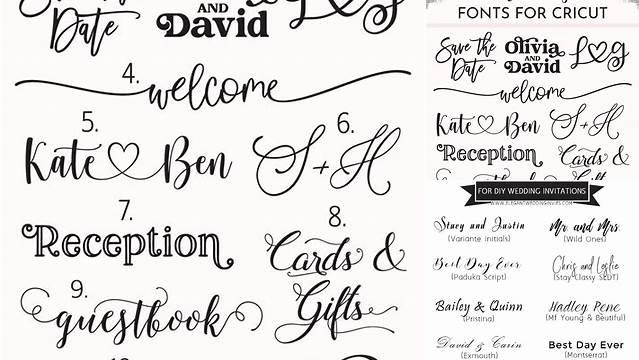 Save the
Date
AND
David
L♡G
4.
welcome
5.
Kate♡Ben
6.
S+H
7.
Reception
8.
Cards &
Gifts
9.
guestbook
10
FONTS FOR CRICUT
Save the
Date
Olivia
AND
David
L♡G
welcome
Kate♡Ben
S+H
Reception
Cards &
FOR DIY WEDDING INVITATIONS
WWW.ELEGANTWEDDINGINVITES.COM
Stacy and Justin
(Variante Initials)
Mr and Mrs
(Wild Ones)
Best Day Ever
(Paduka Script)
Chris and Leslie
(Stay Classy SLDT)
Bailey & Quinn
(Pristina)
Hadley Rene
(Mf Young & Beutiful)
David & Carin
(Exmouth)
Best Day Ever
(Montserrat)